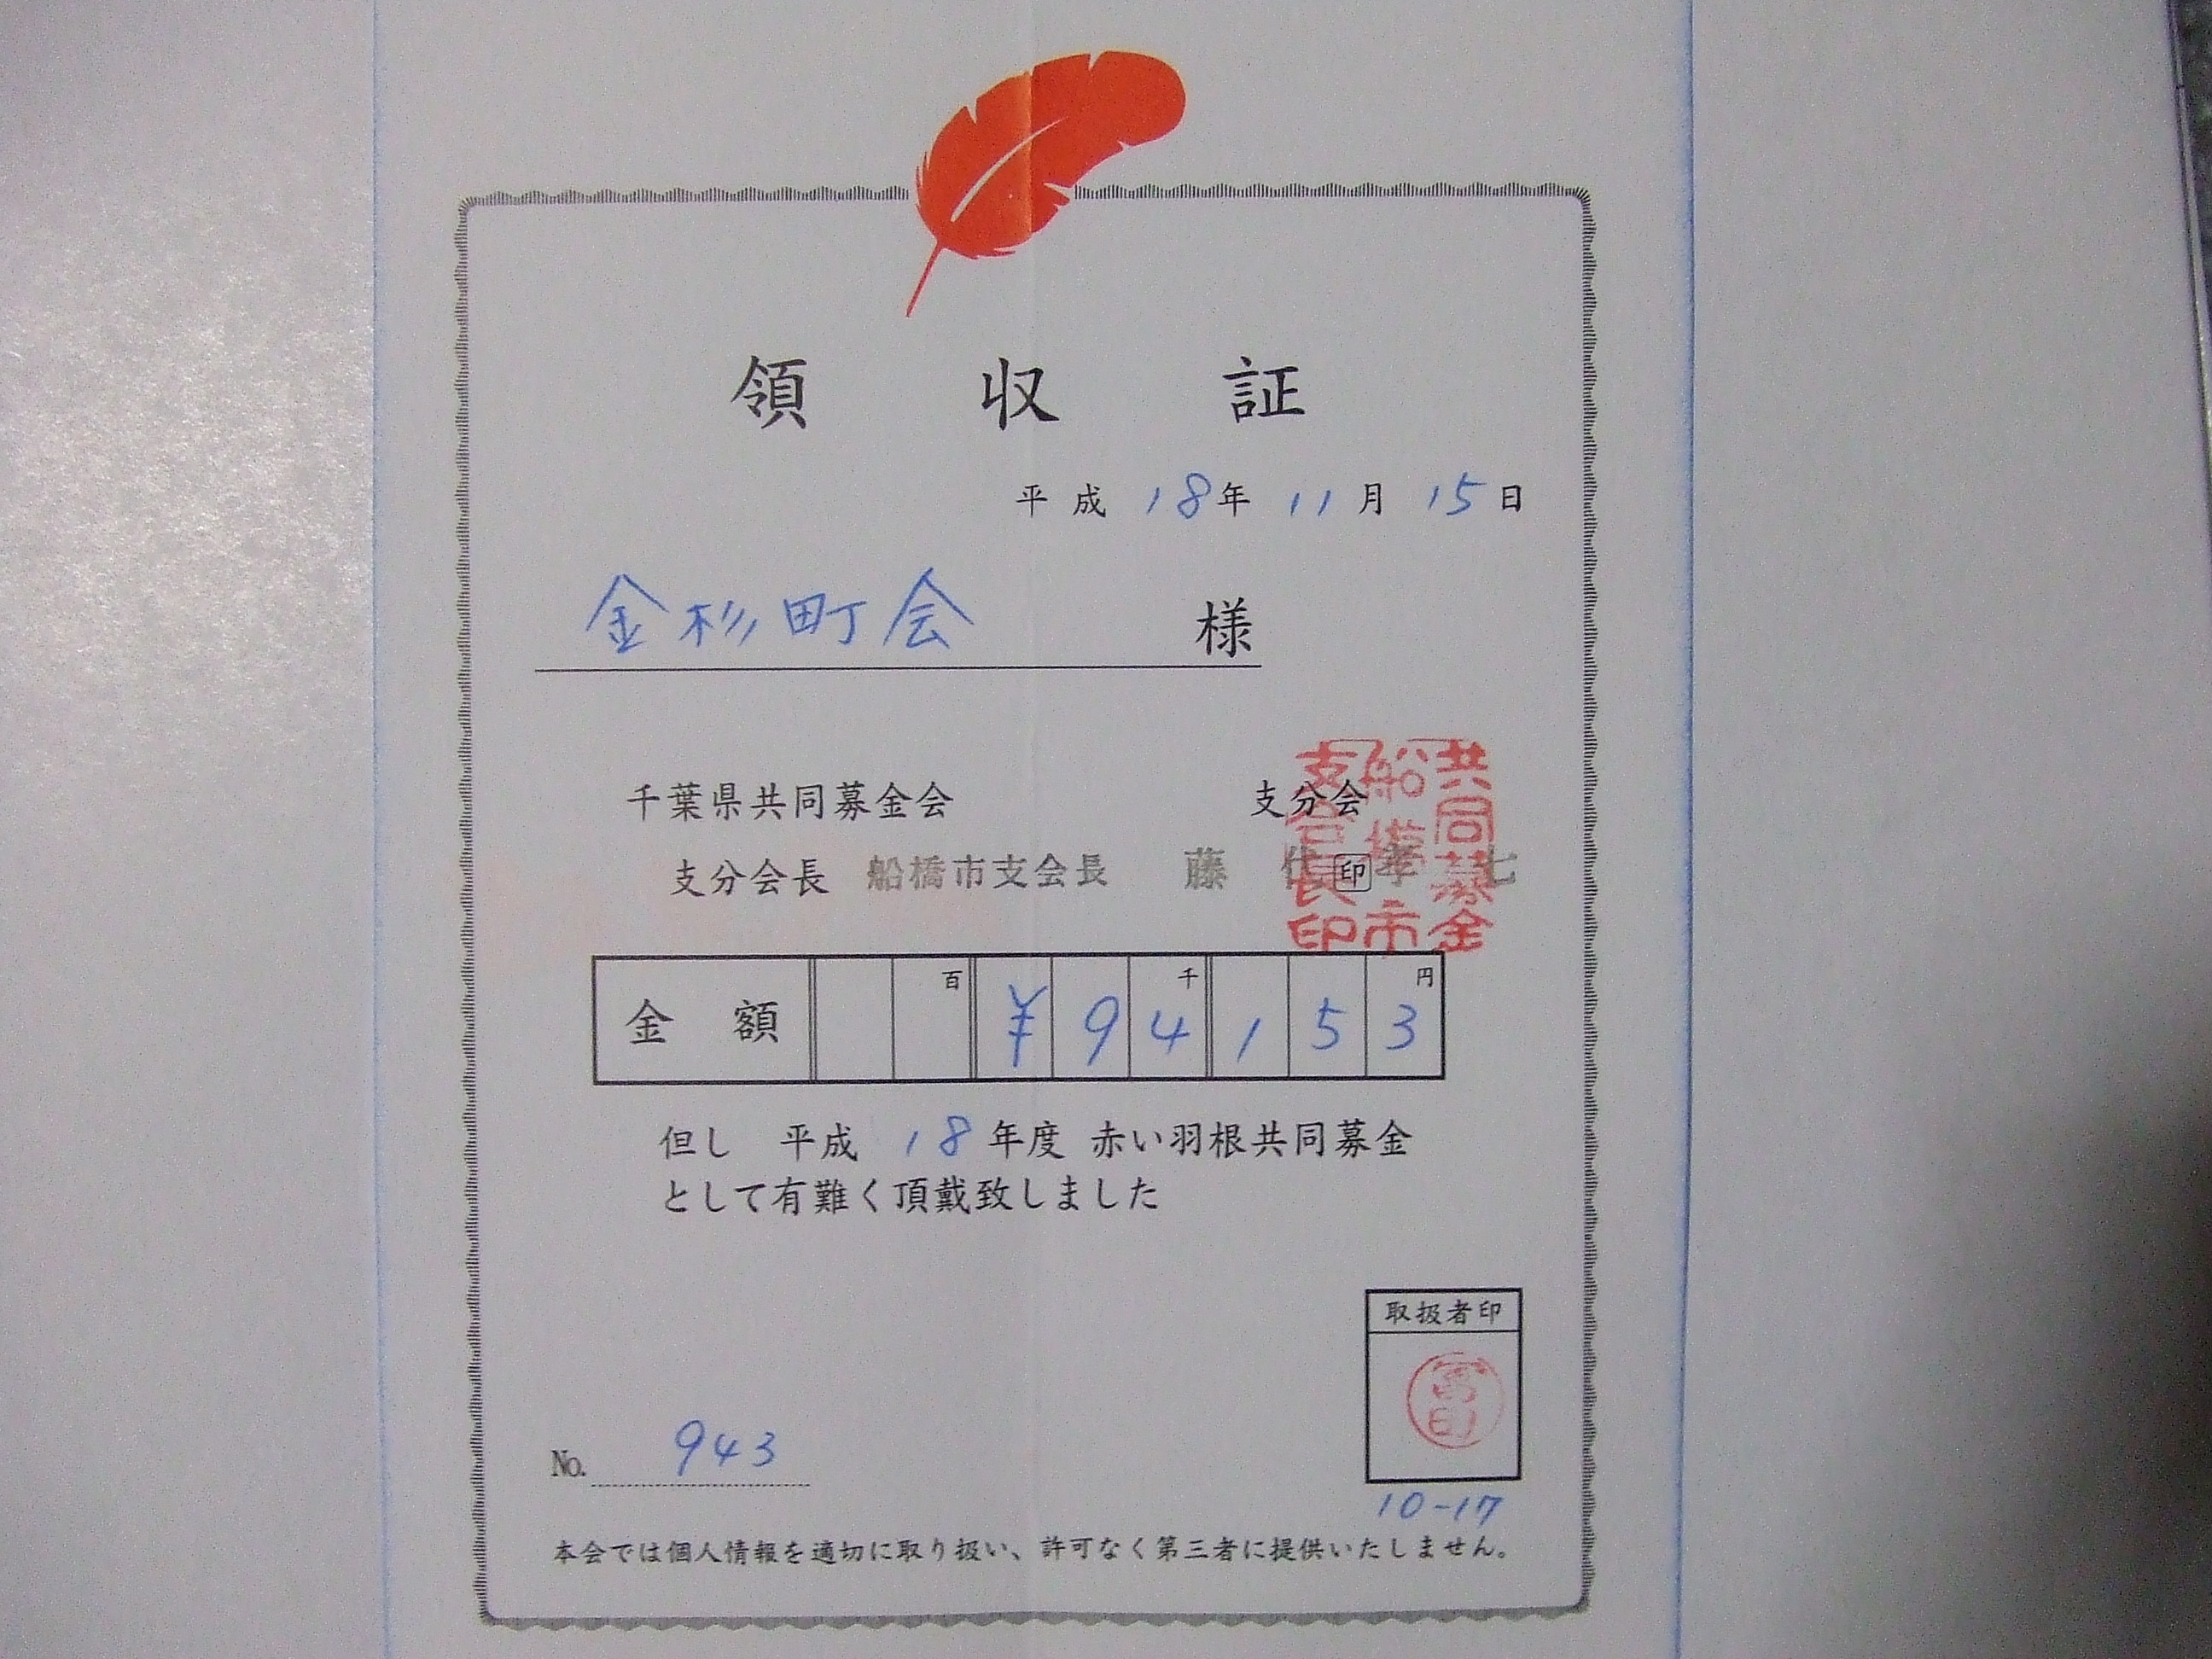 領収証
平成 18年 11月 15日
金杉町会 様
千葉県共同募金会 支分会
支分会長 船橋市支会長 藤代孝七 印
共同募金
船橋市
支会長印
金額 百 ¥94千153円
但し 平成 18年度 赤い羽根共同募金
として有難く頂戴致しました
取扱者印
No. 943
10-17
本会では個人情報を適切に取り扱い、許可なく第三者に提供いたしません。